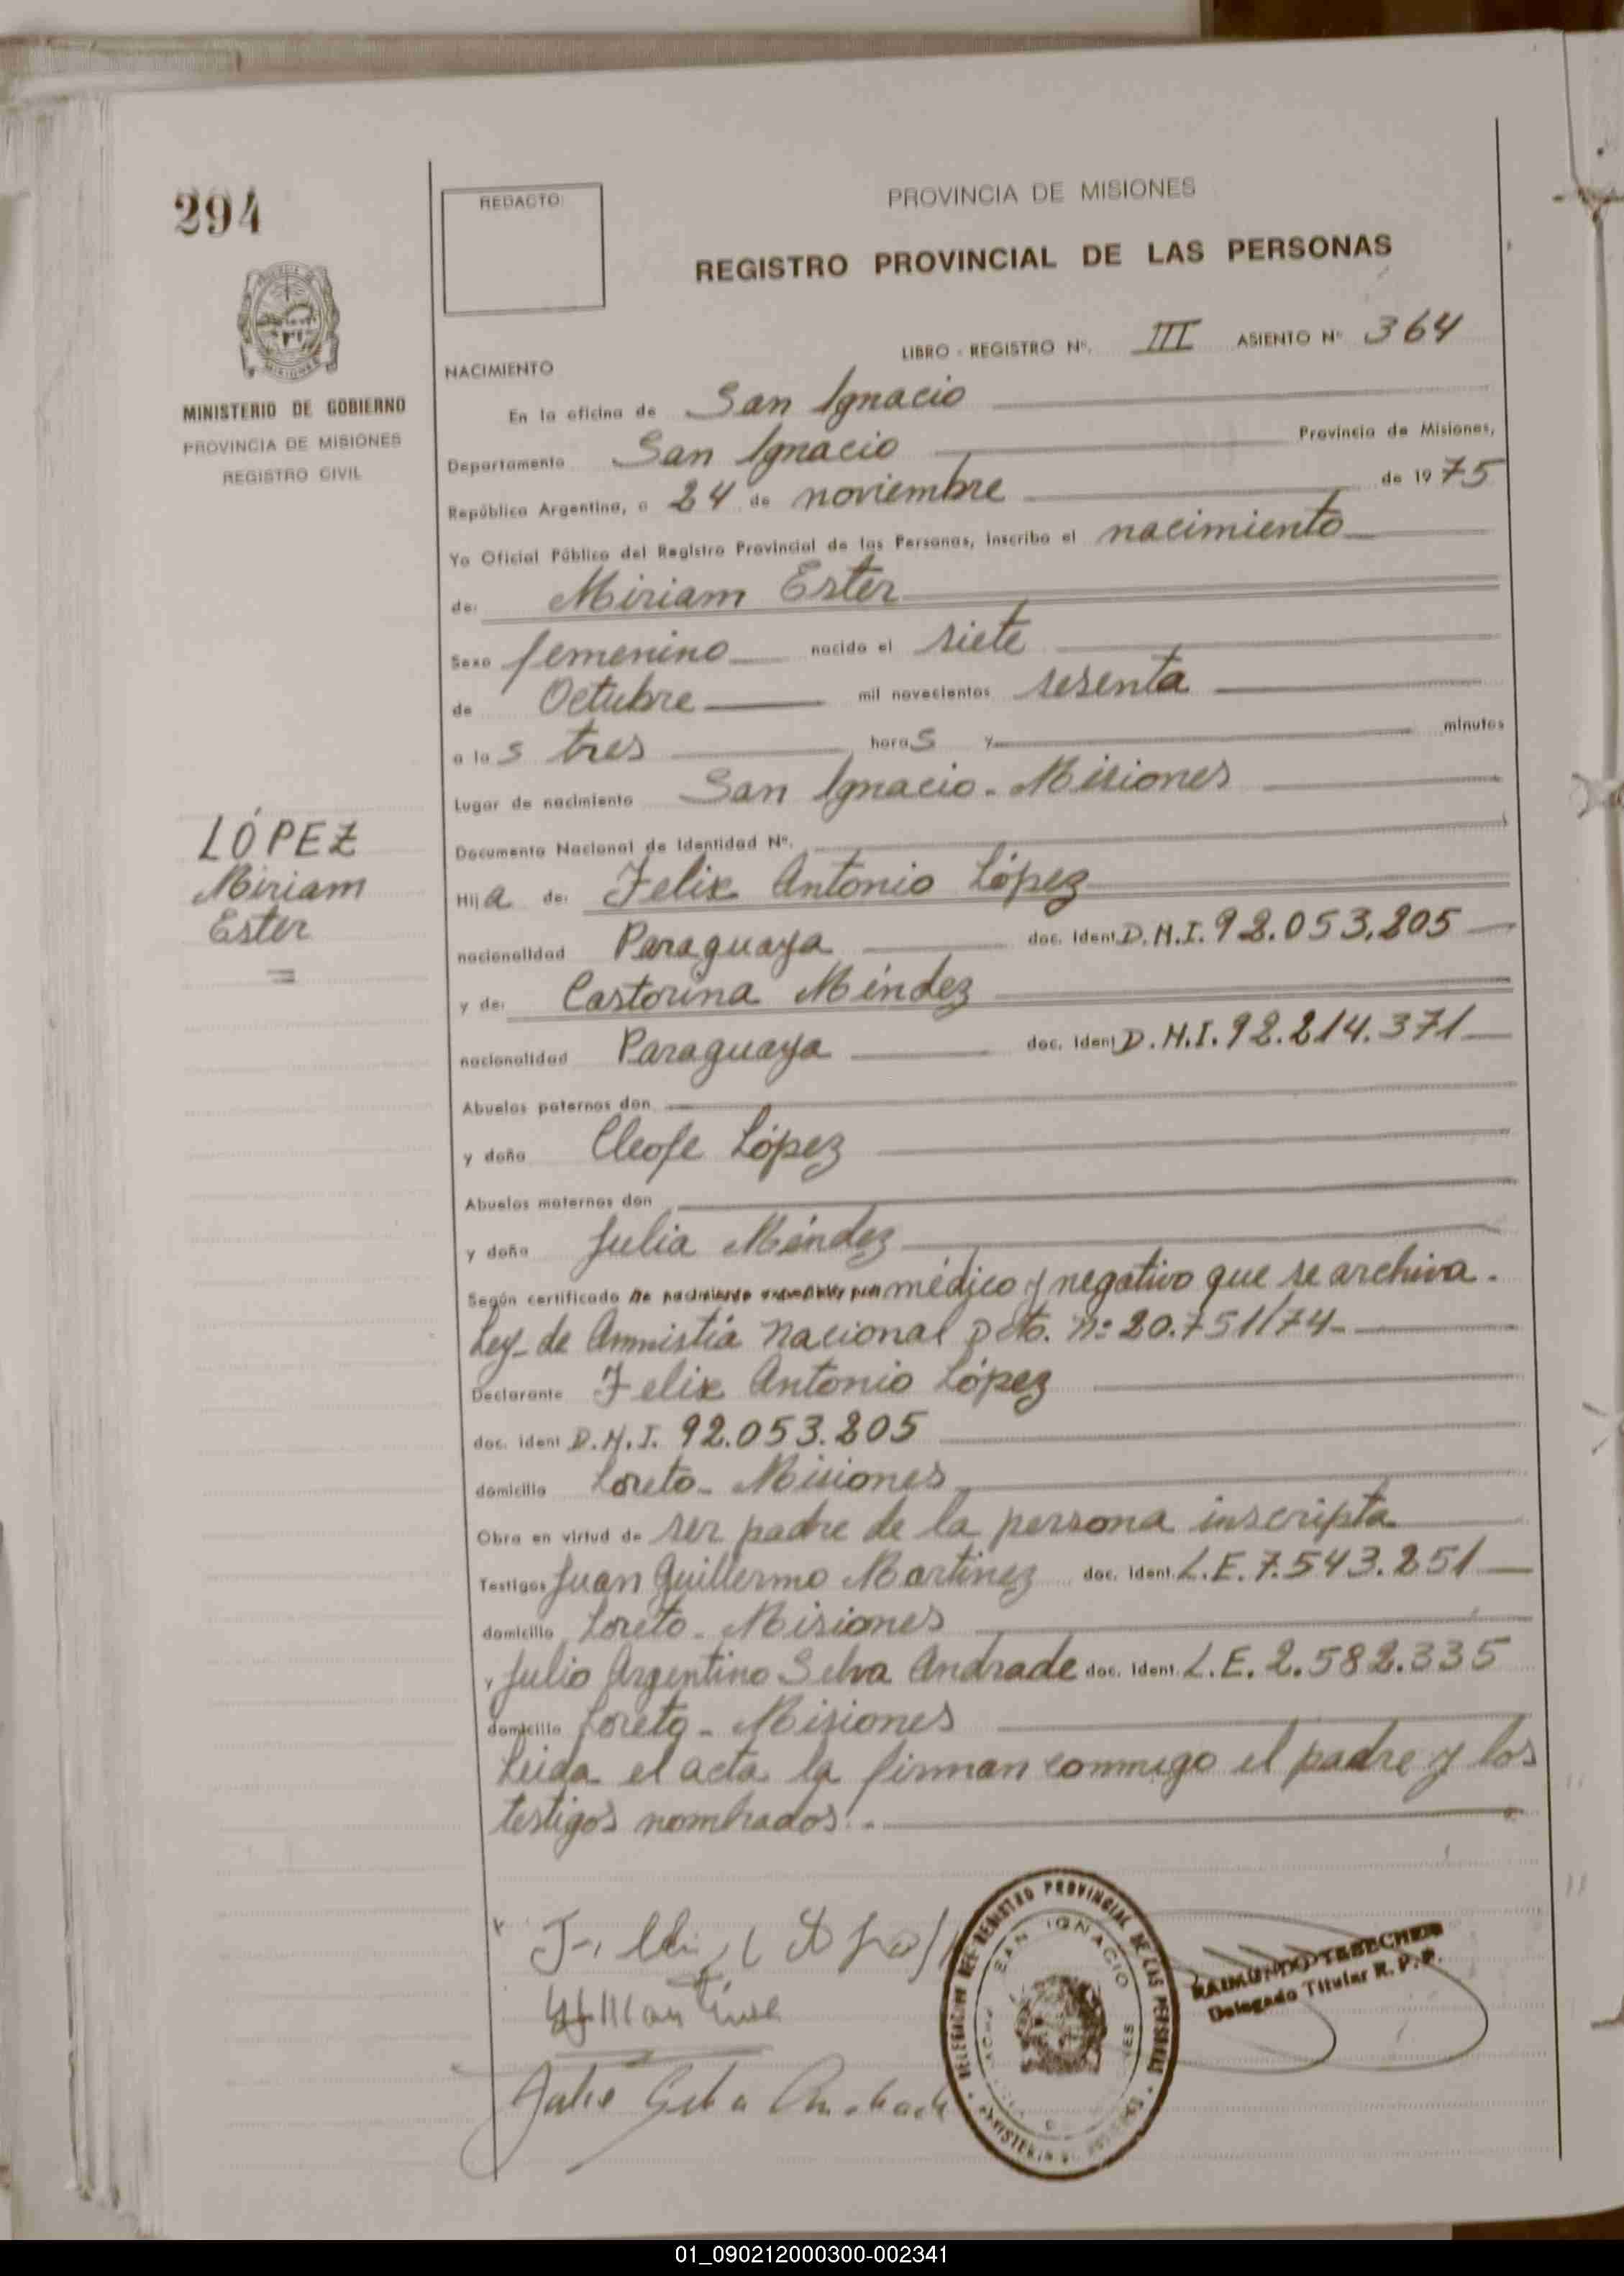 294
REDACTO:
PROVINCIA DE MISIONES
REGISTRO PROVINCIAL DE LAS PERSONAS
MINISTERIO DE GOBIERNO
PROVINCIA DE MISIONES
REGISTRO CIVIL
LIBRO - REGISTRO Nº. III ASIENTO Nº 364
NACIMIENTO
En la oficina de San Ignacio
Departamento San Ignacio Provincia de Misiones,
República Argentina, a 24 de noviembre de 1975
Yo Oficial Público del Registro Provincial de las Personas, inscribo el nacimiento
de: Miriam Ester
Sexo femenino nacido el siete
de Octubre mil novecientos sesenta
a las tres horas y minutos
Lugar de nacimiento San Ignacio - Misiones
Documento Nacional de Identidad Nº.
LÓPEZ
Miriam
Ester
Hija de: Felix Antonio López
nacionalidad Paraguaya doc. ident D.N.I. 92.053.205
y de: Castorina Méndez
nacionalidad Paraguaya doc. ident D.N.I. 92.214.371
Abuelos paternos don
y doña Cleofe López
Abuelos maternos don
y doña Julia Méndez
Según certificado de nacimiento expedido por médico y negativo que se archiva.
Ley de Amnistía Nacional Dcto. nº 20.751/74
Declarante Felix Antonio López
doc. ident D.N.I. 92.053.205
domicilio Loreto - Misiones
Obra en virtud de ser padre de la persona inscripta
Testigos Juan Guillermo Martinez doc. ident. L.E. 7.543.251
domicilio Loreto - Misiones
y Julio Argentino Selva Andrade doc. ident. L.E. 2.582.335
domicilio Loreto - Misiones
Leida el acta la firman conmigo el padre y los
testigos nombrados.
DELEGACION DEL REGISTRO PROVINCIAL DE LAS PERSONAS
SAN IGNACIO
RAIMUNDO TEBECHERI
Delegado Titular R. P. P.
Julio Selva Andrade
01_090212000300-002341